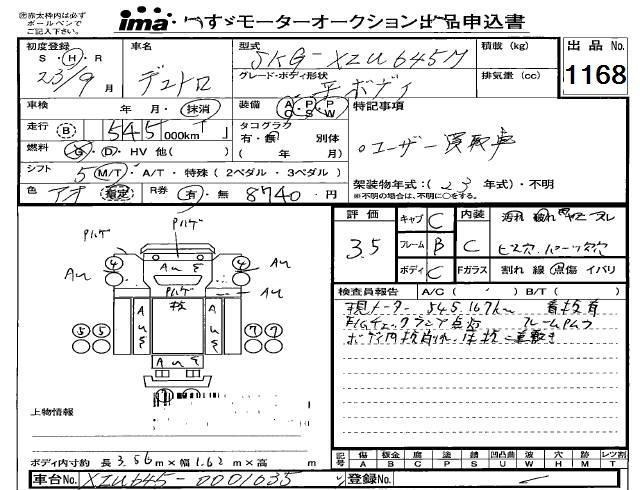 ㊟赤太枠内は必ず
ボールペンで
ご記入下さい。
ima いすゞモーターオークション出品申込書
初度登録 車名 型式 SKG-XZU645M 積載 (kg) 出品 No.
S・H・R デュトロ グレード・ボディ形状 平ボディ 排気量 (cc) 1168
23/9月
車検 年 月・抹消 装備 A・P・P C・S・W 特記事項
走行 B 545,000km タコグラフ
有・無 別体
燃料 G・D・HV 他( ) ( 年 月) ユーザー買取車
シフト 5 M/T・A/T・特殊(2ペダル・3ペダル)
架装物年式:(23年式)・不明
※不明の場合は、不明に○をする。
色 アオ 指定 R券 有・無 8740円
評価 3.5
キャブ C 内装 汚れ 破れ ヤニ スレ
フレーム B C ビス穴 パーツ欠
ボディ C Fガラス 割れ 線 点傷 イバリ
検査員報告 A/C ( ) B/T ( )
現メーター 545,167km
チェックランプ点灯
PハゲPハゲ
AU AU
4 4
AUS
Pハゲ
AUS AUS
5 5 7 7
AUS
上物情報
ボディ内寸約 長 3.56m×幅 1.62m×高 m
記号 傷 A 板金 B 腐 C 塗 P 錆 S 凹凸曲 U 波 W 穴 H 跡 M レツ割 T
車台No. XZU645-0001035 登録No.